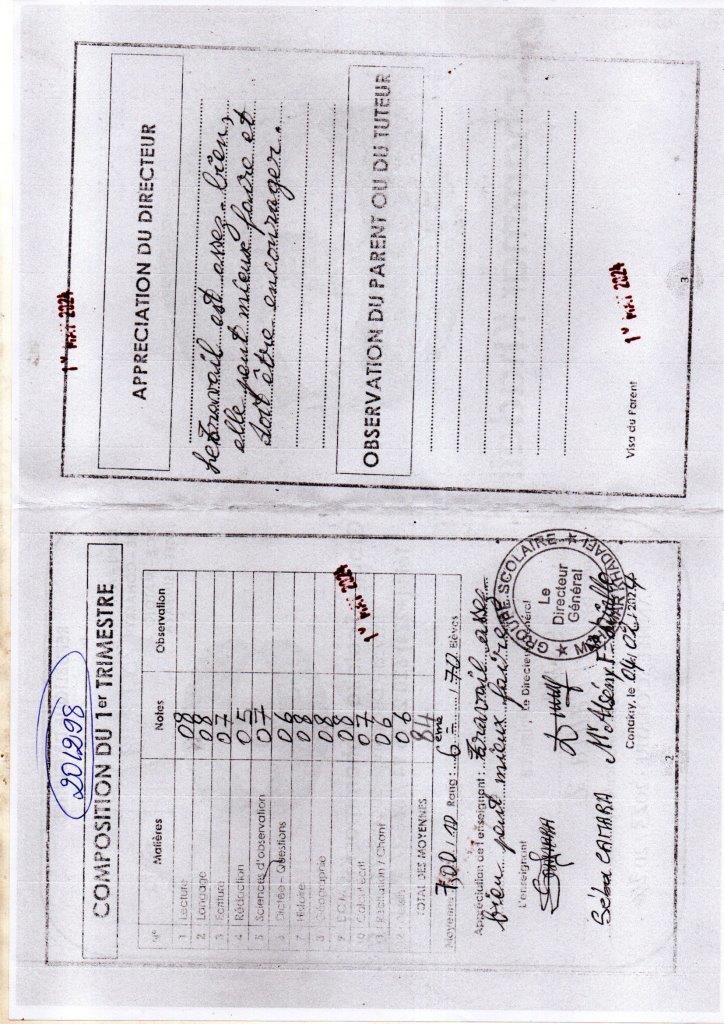 201298
COMPOSITION DU 1er TRIMESTRE
N° Matières Notes Observation
1 Lecture 08
2 Langage 08
3 Ecriture 07
4 Rédaction 05
5 Sciences d'observation 07
6 Dictée - Questions 06
7 Histoire 08
8 Géographie 08
9 08
10 07
11 Récitation / Chant 06
06
TOTAL DES MOYENNES 84
1er MAI 2024
Moyenne 7,00/10 Rang : 6ème / 70 Elèves
Appréciation de l'enseignant : Travail assez
bien peut mieux faire
L'enseignant Le Directeur Général
GROUPE SCOLAIRE
Le
Directeur
Général
CAMARA Mr Alsény
Conakry, le 04/02/2024
2
1er MAI 2024
APPRECIATION DU DIRECTEUR
Le travail est assez-bien,
elle peut mieux faire et
doit être encourager.
OBSERVATION DU PARENT OU DU TUTEUR
Visa du Parent
1er MAI 2024
3